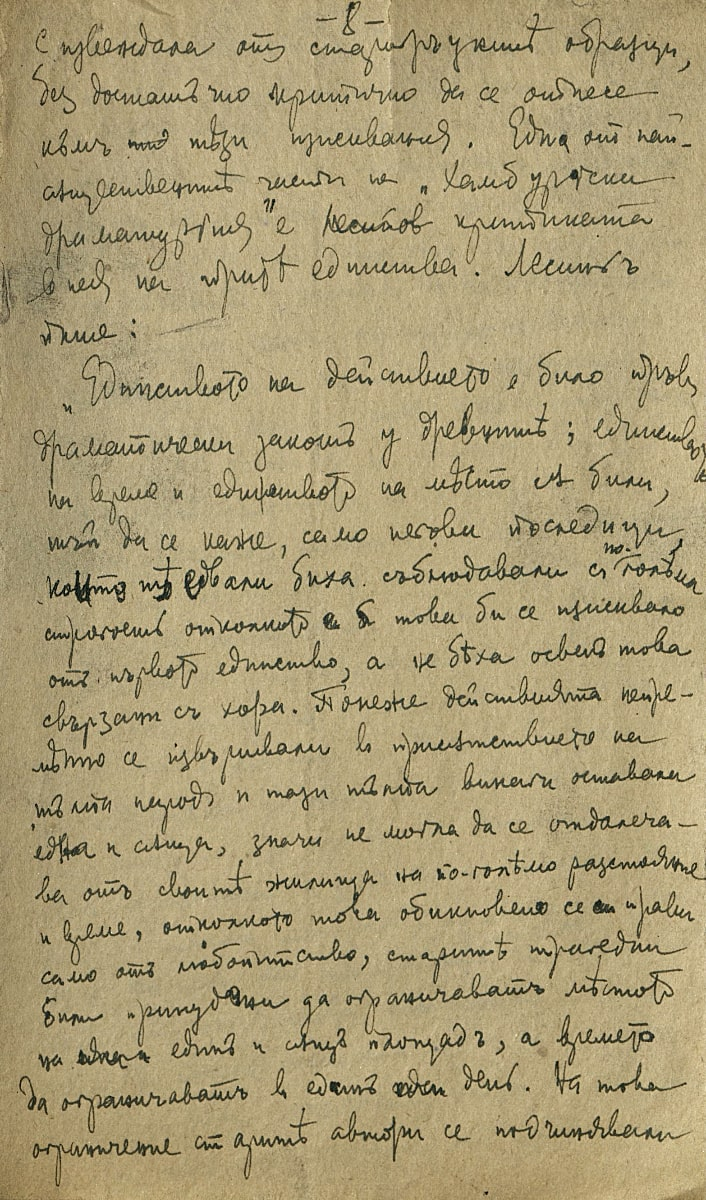 – 8 –
с извеждала отъ старогръцкитѣ образци,
безъ достатъчно критично да се отнесе
къмъ тѣзи изисквания. Една от най-
сѫществениитѣ части на „Хамбургски
драматургия" е критиката
в нея на тритѣ единства. Лесингъ
пише:
„Единството на действието е било първъ
драматически законъ у древнитѣ; единството
на време и единството на мѣсто сѫ били,
тъй да се каже, само негови последици,
които тѣ едвали биха съблюдавали съ по-голѣма
строгость отколкото това би се изисквало
отъ първото единство, а не бѣха освенъ това
свързани съ хора. Понеже действията
се извършвали в присѫтствието на
народъ и тази тълпа винаги оставала
една и сѫща, значи не могла да се отдалеча-
ва отъ своитѣ жилища на по-голѣмо разстояние
и време, отколкото това обикновено се прави
само отъ любопитство, старитѣ трагедии
били принудени да ограничаватъ мѣстото
на единъ и сѫщъ площадъ, а времето
да ограничаватъ в единъ день. На това
ограничение старитѣ автори се подчинявали